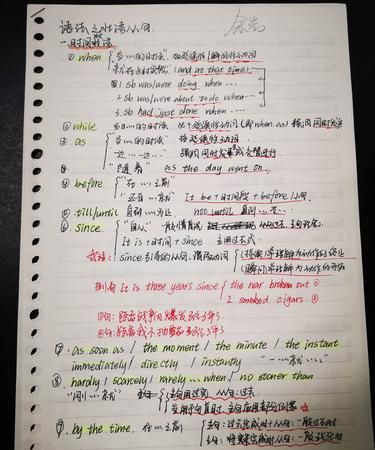 语法之状语从句
一.时间状语
① when "当…的时候" 延续性/瞬间性动词
就在这时突然 (and at that time)
1. Sb was/were doing when…
2. Sb was/were about to do when…
3. Sb had just done when…
② while "当…的时候" 从+延续性动词 强调同时发生
③ as "当…的时候" 延续性动词
"一边…一边…" 强调同时发生或交替进行
"随着" as the day went on.
④ before "在…之前"
It be + 时间段 + before 从句.
⑤ till/until 直到…为止 not until 直到…才…
⑥ since "自从"
It is + 时间 + since 主过去式
since 引导的从句
例句 It is three years since the war broken out ①
I smoked cigars ②
①句: 距离战争爆发3年了
②句: 距离我不抽雪茄3年了
⑦. as soon as / the moment / the minute / the instant
immediately / directly / instantly "一…就…"
⑧ hardly / scarcely / rarely … when / no sooner than
"刚…就" 主句用过完, 从句:过去.
⑨. by the time. 在…之前
主句: 将来完成时 从句: 一般现在时